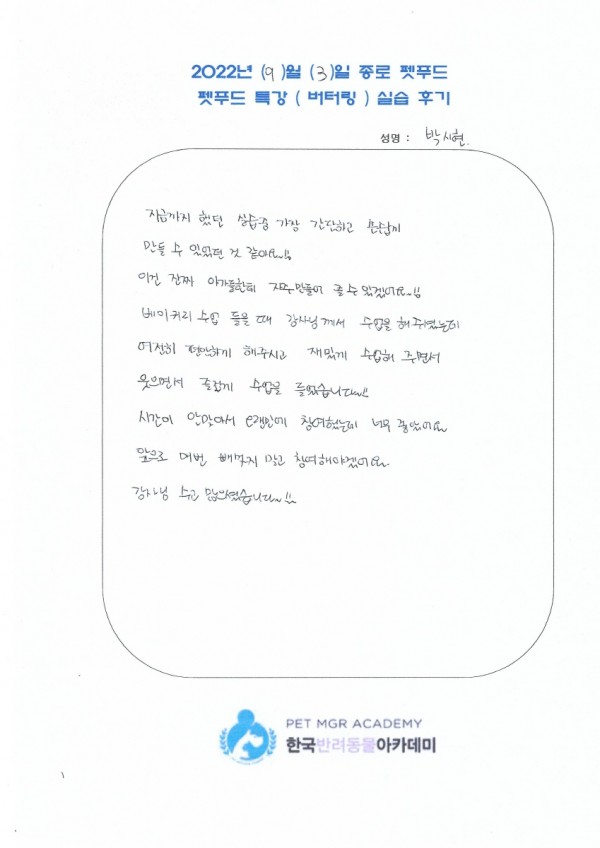 2022년 (9)월 (3)일 종로 펫푸드
펫푸드 특강 ( 버터링 ) 실습 후기
성명 : 박시현
지금까지 했던 실습중 가장 간단하고 손쉽게
만들 수 있었던 것 같아요~!!
이건 진짜 아가들한테 자주 만들어 줄 수 있겠어요~!!
베이커리 수업 들을 때 강사님께서 수업을 해주셨는데
여전히 편안하게 해주시고 재밌게 수업해 주면서
웃으면서 즐겁게 수업을 들었습니다~!!
시간이 안맞아서 오랜만에 참여했는데 너무 좋았어요~
앞으로 매번 빼먹지 말고 참여해야겠어요~
강사님 수고 많으셨습니다~!!
PET MGR ACADEMY
한국반려동물아카데미